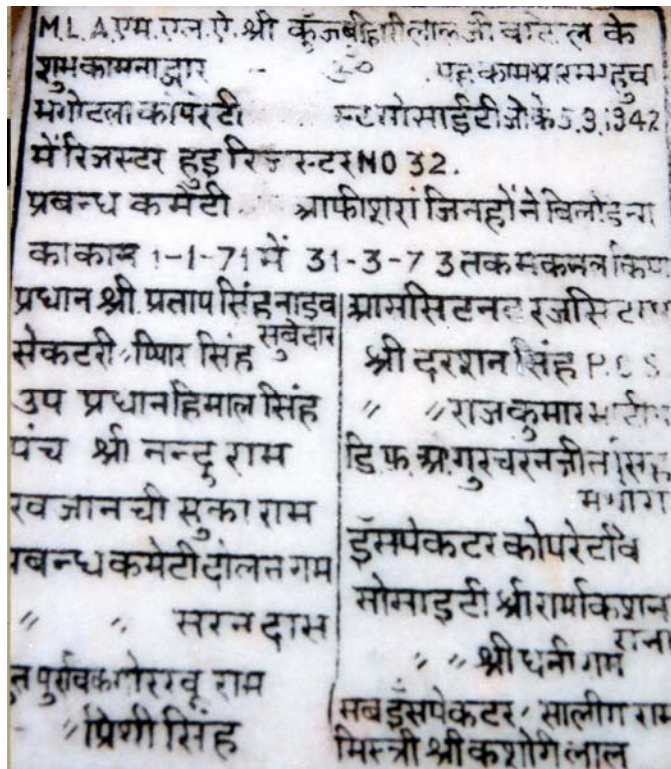 M.L.A. एम.एल.ऐ. श्री कुंजबीहारी लाल जी के
शुभकामना द्वार
मगोटला कोपरेटी सोसाईटी जो के 5.3.1342
में रिजस्टर हुइ रिजस्टर NO 32.
प्रबन्ध कमेटी आफीशरां जिनहोंने
का काम 1-1-71 में 31-3-73 तक
प्रधान श्री प्रताप सिंह
सुबेदार
सेकटरी " प्यिार सिंह
उप प्रधान हिमाल सिंह
पंच श्री नन्दु राम
खजानची सुका राम
कमेटी दोलत राम
" " सरन दास
राम
" प्रिथी सिंह
श्री दरशन सिंह P.C.S.
" " राजकुमार
डि.फ.ओ. गुरचरनजीत सिंह
इंसपेकटर कोपरेटिव
सोसाइटी श्री रामकिशन
राना
" " श्री धनी राम
सब इंसपेकटर सालीग राम
मिस्त्री श्री कशोरी लाल